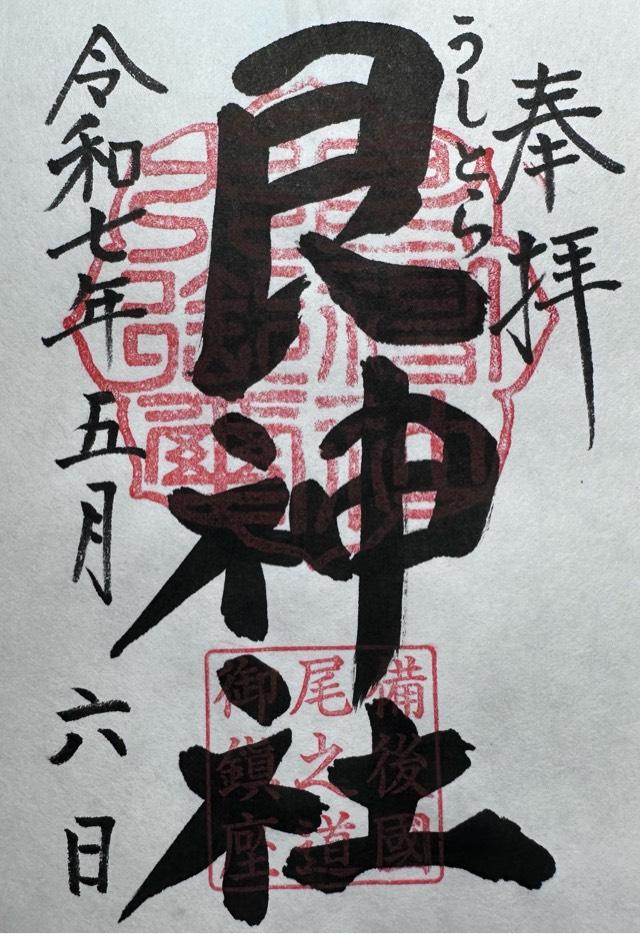 奉拝
うしとら
艮神社
令和七年 五月 六 日
備後國
尾之道
御鎮座